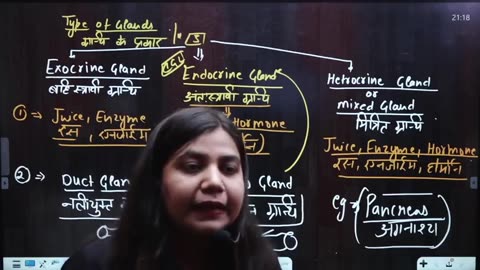 21:18
Type of Glands
ग्रन्थि के प्रकार
3
Exocrine Gland
बहिःस्त्रावी ग्रन्थि
Endocrine Gland
अंतःस्त्रावी ग्रन्थि
Hetrocrine Gland
or
mixed Gland
मिश्रित ग्रन्थि
① → Juice, Enzyme
रस, एन्जाइम
Hormone
Juice, Enzyme, Hormone
रस, एन्जाइम, हार्मोन
② → Duct Gland
Gland
नलीयुक्त
ग्रन्थि
eg → Pancreas
अग्नाशय